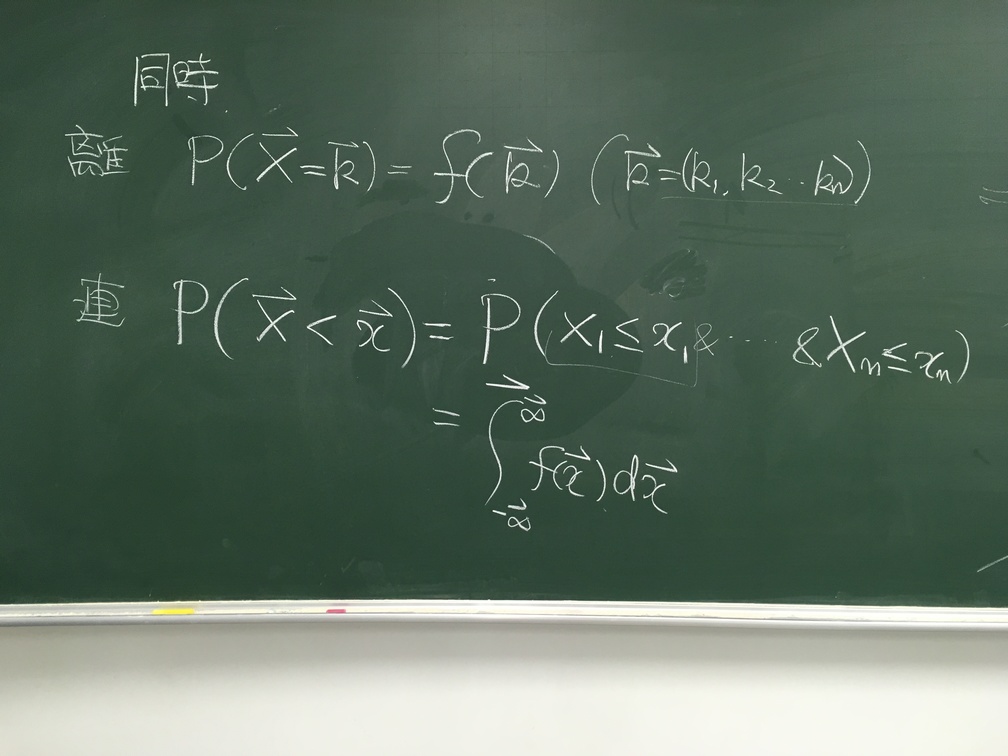 同時
離 P(X⃗=k⃗) = f(k⃗) (k⃗=(k₁, k₂‥kₙ))
連 P(X⃗ < x⃗) = P(X₁≤x₁ & ‥‥ & Xₙ≤xₙ)
= ∫_{-∞⃗}^{∞⃗} f(x⃗)dx⃗